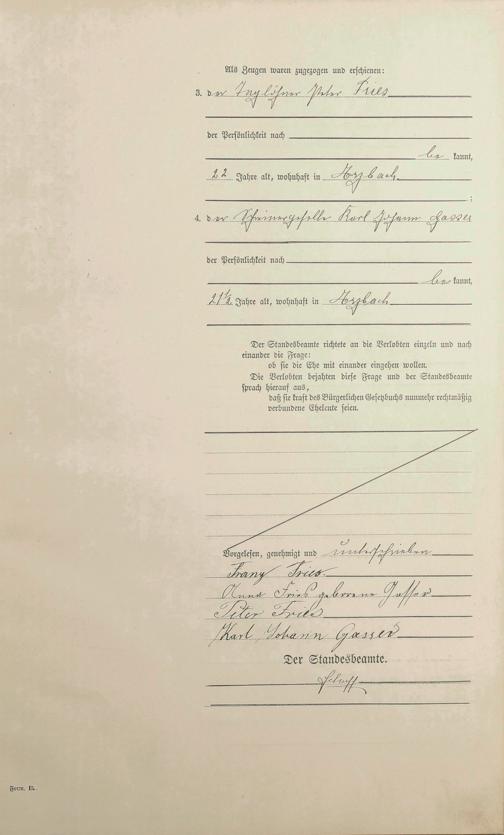 Als Zeugen waren zugezogen und erschienen:
3. der Taglöhner Peter Fries
der Persönlichkeit nach
be kannt,
22 Jahre alt, wohnhaft in Arzbach
;
4. der Schreinergeselle Karl Johann Gasser
der Persönlichkeit nach
be kannt,
21 ½ Jahre alt, wohnhaft in Arzbach
Der Standesbeamte richtete an die Verlobten einzeln und nach
einander die Frage:
ob sie die Ehe mit einander eingehen wollen.
Die Verlobten bejahten diese Frage und der Standesbeamte
sprach hierauf aus,
daß sie kraft des Bürgerlichen Gesetzbuchs nunmehr rechtmäßig
verbundene Eheleute seien.
Vorgelesen, genehmigt und unterschrieben
Franz Fries
Anna Fries geborene Gasser
Peter Fries
Karl Johann Gasser
Der Standesbeamte.
Form. B.